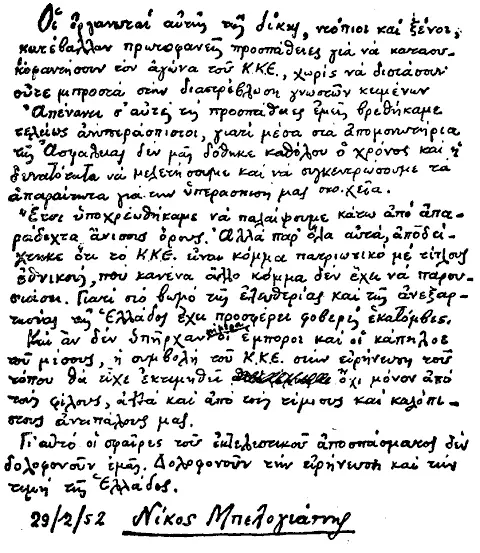 Οἱ ὀργανωταί αὐτῆς τῆς δίκης, ντόπιοι καί ξένοι,
κατέβαλλαν πρωτοφανεῖς προσπάθειες γιά νά κατασυ-
κοφαντήσουν τόν ἀγώνα τοῦ Κ.Κ.Ε., χωρίς νά διστάσουν
οὔτε μπροστά στήν διαστρέβλωση γνωστῶν κειμένων
Ἀπέναντι σ' αὐτές τίς προσπάθειες ἐμεῖς βρεθήκαμε
τελείως ἀνυπεράσπιστοι, γιατί μέσα στά ἀπομονωτήρια
τῆς Ἀσφάλειας δέν μᾶς δόθηκε καθόλου ὁ χρόνος καί ἡ
δυνατότητα νά μελετήσουμε καί νά συγκεντρώσουμε τά
ἀπαραίτητα γιά τήν ὑπεράσπιση μας στοιχεῖα.
Ἔτσι ὑποχρεωθήκαμε νά παλαίψουμε κάτω ἀπό ἀπα-
ράδεχτα ἄνισους ὅρους. Ἀλλά παρ' ὅλα αὐτά, ἀποδεί-
χτηκε ὅτι τό Κ.Κ.Ε. εἶναι κόμμα πατριωτικό μέ τίτλους
ἐθνικούς, πού κανένα ἄλλο κόμμα δέν ἔχει νά παρου-
σιάσει. Γιατί στό βωμό τῆς ἐλευθερίας καί τῆς ἀνεξαρ-
τησίας τῆς Ἑλλάδος ἔχει προσφέρει φοβερές ἑκατόμβες.
Καί ἄν δέν ὑπῆρχαν οἱ ἔμποροι καί οἱ κάπηλοι
τοῦ μίσους, ἡ συμβολή τοῦ Κ.Κ.Ε. στήν εἰρήνευση τοῦ
τόπου θά εἶχε ἐκτιμηθεῖ ὄχι μόνον ἀπό
τούς φίλους, ἀλλά καί ἀπό τούς τίμιους καί καλόπι-
στους ἀντιπάλους μας.
Γι' αὐτό οἱ σφαῖρες τοῦ ἐκτελεστικοῦ ἀποσπάσματος δέν
δολοφονοῦν ἐμᾶς. Δολοφονοῦν τήν εἰρήνευση καί τήν
τιμή τῆς Ἑλλάδος.
29/2/52 Νίκος Μπελογιάννης